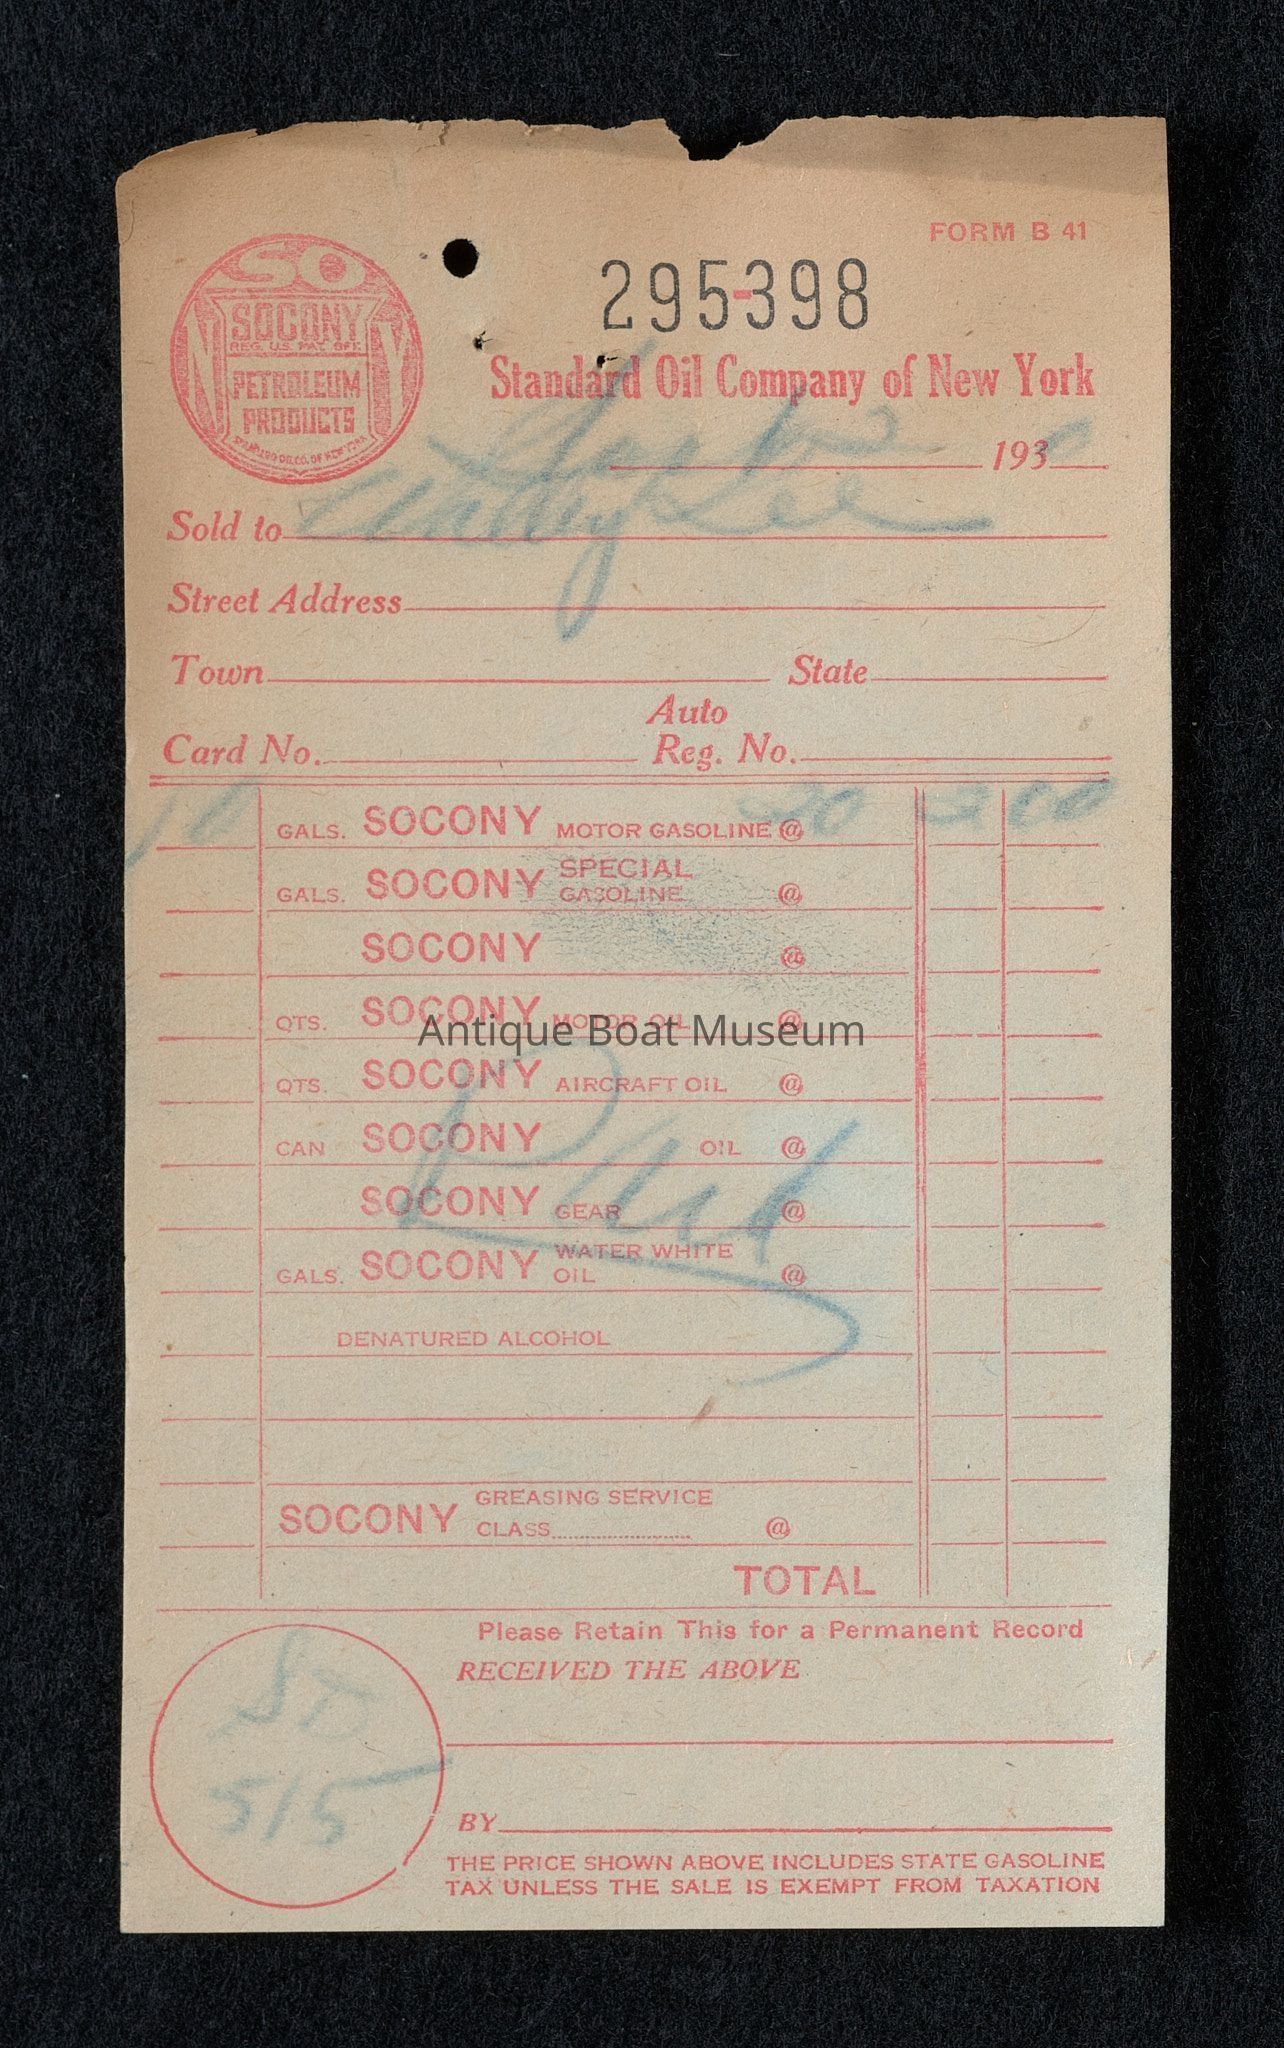 FORM B 41
SO
N Y
SOCONY
REG. U.S. PAT. OFF.
PETROLEUM
PRODUCTS
STANDARD OIL CO. OF NEW YORK
295-398
Standard Oil Company of New York
1930
Sold to
Street Address
Town State
Auto
Card No. Reg. No.
10 GALS. SOCONY MOTOR GASOLINE @ 20 2 00
GALS. SOCONY SPECIAL GASOLINE @
SOCONY @
QTS. SOCONY MOTOR OIL @
Antique Boat Museum
QTS. SOCONY AIRCRAFT OIL @
CAN SOCONY OIL @
SOCONY GEAR @
GALS. SOCONY WATER WHITE OIL @
Paid
DENATURED ALCOHOL
SOCONY GREASING SERVICE
CLASS @
TOTAL
Please Retain This for a Permanent Record
RECEIVED THE ABOVE
515
BY
THE PRICE SHOWN ABOVE INCLUDES STATE GASOLINE
TAX UNLESS THE SALE IS EXEMPT FROM TAXATION